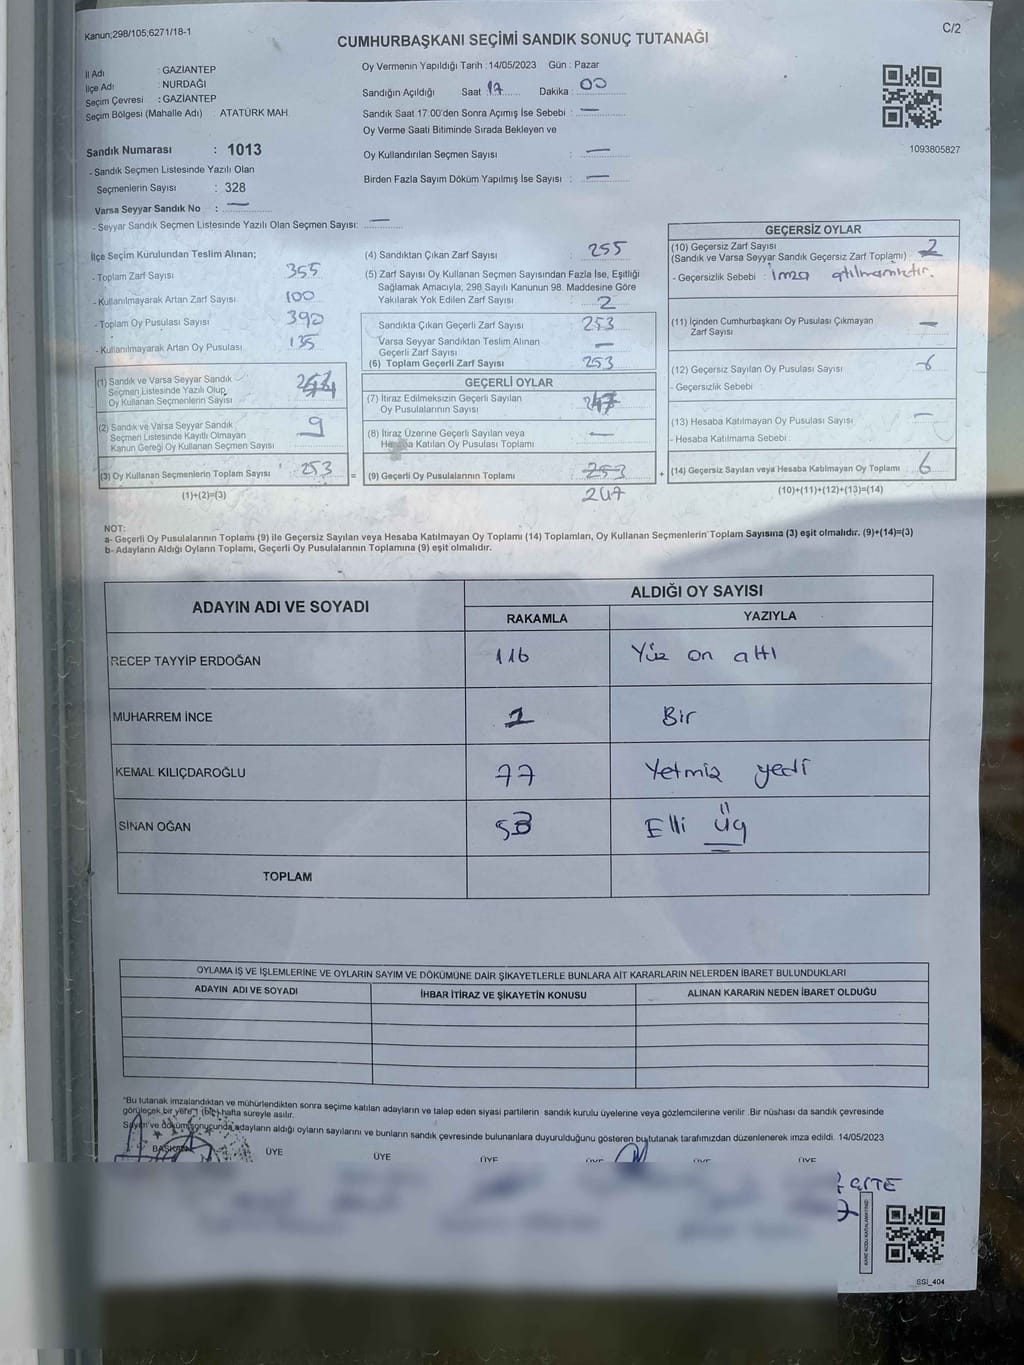 Kanun;298/105;6271/18-1
C/2
CUMHURBAŞKANI SEÇİMİ SANDIK SONUÇ TUTANAĞI
İl Adı : GAZİANTEP
İlçe Adı : NURDAĞI
Seçim Çevresi : GAZİANTEP
Seçim Bölgesi (Mahalle Adı) ATATÜRK MAH.
Sandık Numarası : 1013
- Sandık Seçmen Listesinde Yazılı Olan
Seçmenlerin Sayısı : 328
Varsa Seyyar Sandık No : —
- Seyyar Sandık Seçmen Listesinde Yazılı Olan Seçmen Sayısı: —
Oy Vermenin Yapıldığı Tarih :14/05/2023 Gün : Pazar
Sandığın Açıldığı Saat 17 Dakika : 00
Sandık Saat 17:00'den Sonra Açımış İse Sebebi : —
Oy Verme Saati Bitiminde Sırada Bekleyen ve
Oy Kullandırılan Seçmen Sayısı : —
Birden Fazla Sayım Döküm Yapılmış İse Sayısı : —
1093805827
İlçe Seçim Kurulundan Teslim Alınan;
- Toplam Zarf Sayısı 355
- Kullanılmayarak Artan Zarf Sayısı 100
- Toplam Oy Pusulası Sayısı 390
- Kullanılmayarak Artan Oy Pusulası 135
(1) Sandık ve Varsa Seyyar Sandık
Seçmen Listesinde Yazılı Olup
Oy Kullanan Seçmenlerin Sayısı
(2) Sandık ve Varsa Seyyar Sandık
Seçmen Listesinde Kayıtlı Olmayan
Kanun Gereği Oy Kullanan Seçmen Sayısı 9
(3) Oy Kullanan Seçmenlerin Toplam Sayısı 253 =
(1)+(2)=(3)
(4) Sandıktan Çıkan Zarf Sayısı : 255
(5) Zarf Sayısı Oy Kullanan Seçmen Sayısından Fazla İse, Eşitliği
Sağlamak Amacıyla; 298 Sayılı Kanunun 98. Maddesine Göre
Yakılarak Yok Edilen Zarf Sayısı : 2
Sandıkta Çıkan Geçerli Zarf Sayısı : 253
Varsa Seyyar Sandıktan Teslim Alınan
Geçerli Zarf Sayısı : —
(6) Toplam Geçerli Zarf Sayısı : 253
GEÇERLİ OYLAR
(7) İtiraz Edilmeksizin Geçerli Sayılan
Oy Pusulalarının Sayısı : 247
(8) İtiraz Üzerine Geçerli Sayılan veya
Hesaba Katılan Oy Pusulası Toplamı : —
(9) Geçerli Oy Pusulalarının Toplamı : 253 +
247
GEÇERSİZ OYLAR
(10) Geçersiz Zarf Sayısı
(Sandık ve Varsa Seyyar Sandık Geçersiz Zarf Toplamı) : 2
- Geçersizlik Sebebi : İmza atılmamıştır.
(11) İçinden Cumhurbaşkanı Oy Pusulası Çıkmayan
Zarf Sayısı —
(12) Geçersiz Sayılan Oy Pusulası Sayısı 6
- Geçersizlik Sebebi
(13) Hesaba Katılmayan Oy Pusulası Sayısı —
- Hesaba Katılmama Sebebi :
(14) Geçersiz Sayılan veya Hesaba Katılmayan Oy Toplamı 6
(10)+(11)+(12)+(13)=(14)
NOT:
a- Geçerli Oy Pusulalarının Toplamı (9) ile Geçersiz Sayılan veya Hesaba Katılmayan Oy Toplamı (14) Toplamları, Oy Kullanan Seçmenlerin Toplam Sayısına (3) eşit olmalıdır. (9)+(14)=(3)
b- Adayların Aldığı Oyların Toplamı, Geçerli Oy Pusulalarının Toplamına (9) eşit olmalıdır.
ADAYIN ADI VE SOYADI ALDIĞI OY SAYISI
RAKAMLA YAZIYLA
RECEP TAYYİP ERDOĞAN 116 Yüz on altı
MUHARREM İNCE 1 Bir
KEMAL KILIÇDAROĞLU 77 Yetmiş yedi
SİNAN OĞAN 53 Elli üç
TOPLAM
OYLAMA İŞ VE İŞLEMLERİNE VE OYLARIN SAYIM VE DÖKÜMÜNE DAİR ŞİKAYETLERLE BUNLARA AİT KARARLARIN NELERDEN İBARET BULUNDUKLARI
ADAYIN ADI VE SOYADI İHBAR İTİRAZ VE ŞİKAYETİN KONUSU ALINAN KARARIN NEDEN İBARET OLDUĞU
"Bu tutanak imzalandıktan ve mühürlendikten sonra seçime katılan adayların ve talep eden siyasi partilerin sandık kurulu üyelerine veya gözlemcilerine verilir .Bir nüshası da sandık çevresinde
görülecek bir yere (bir) hafta süreyle asılır.
Sayım ve döküm sonucunda,adayların aldığı oyların sayılarını ve bunların sandık çevresinde bulunanlara duyurulduğunu gösteren bu tutanak tarafımızdan düzenlenerek imza edildi. 14/05/2023
BAŞKAN ÜYE ÜYE ÜYE ÜYE ÜYE ÜYE
SSİ_404